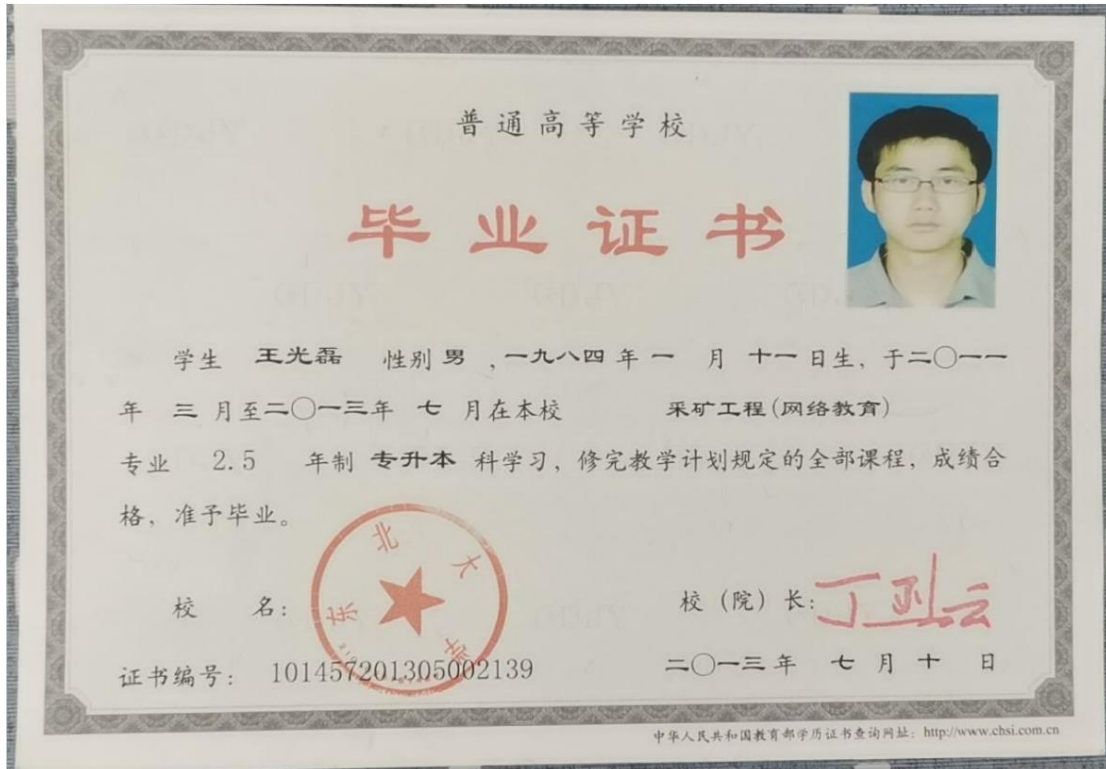 普通高等学校
毕业证书
学生 王光磊 性别 男 ,一九八四 年 一 月 十一 日生, 于二〇一一
年 三 月至二〇一三年 七 月在本校 采矿工程(网络教育)
专业 2.5 年制 专升本 科学习, 修完教学计划规定的全部课程, 成绩合
格, 准予毕业。
东北大学
校 名:
校 (院) 长: 丁烈云
证书编号: 101457201305002139
二〇一三 年 七 月 十 日
中华人民共和国教育部学历证书查询网址: http://www.chsi.com.cn